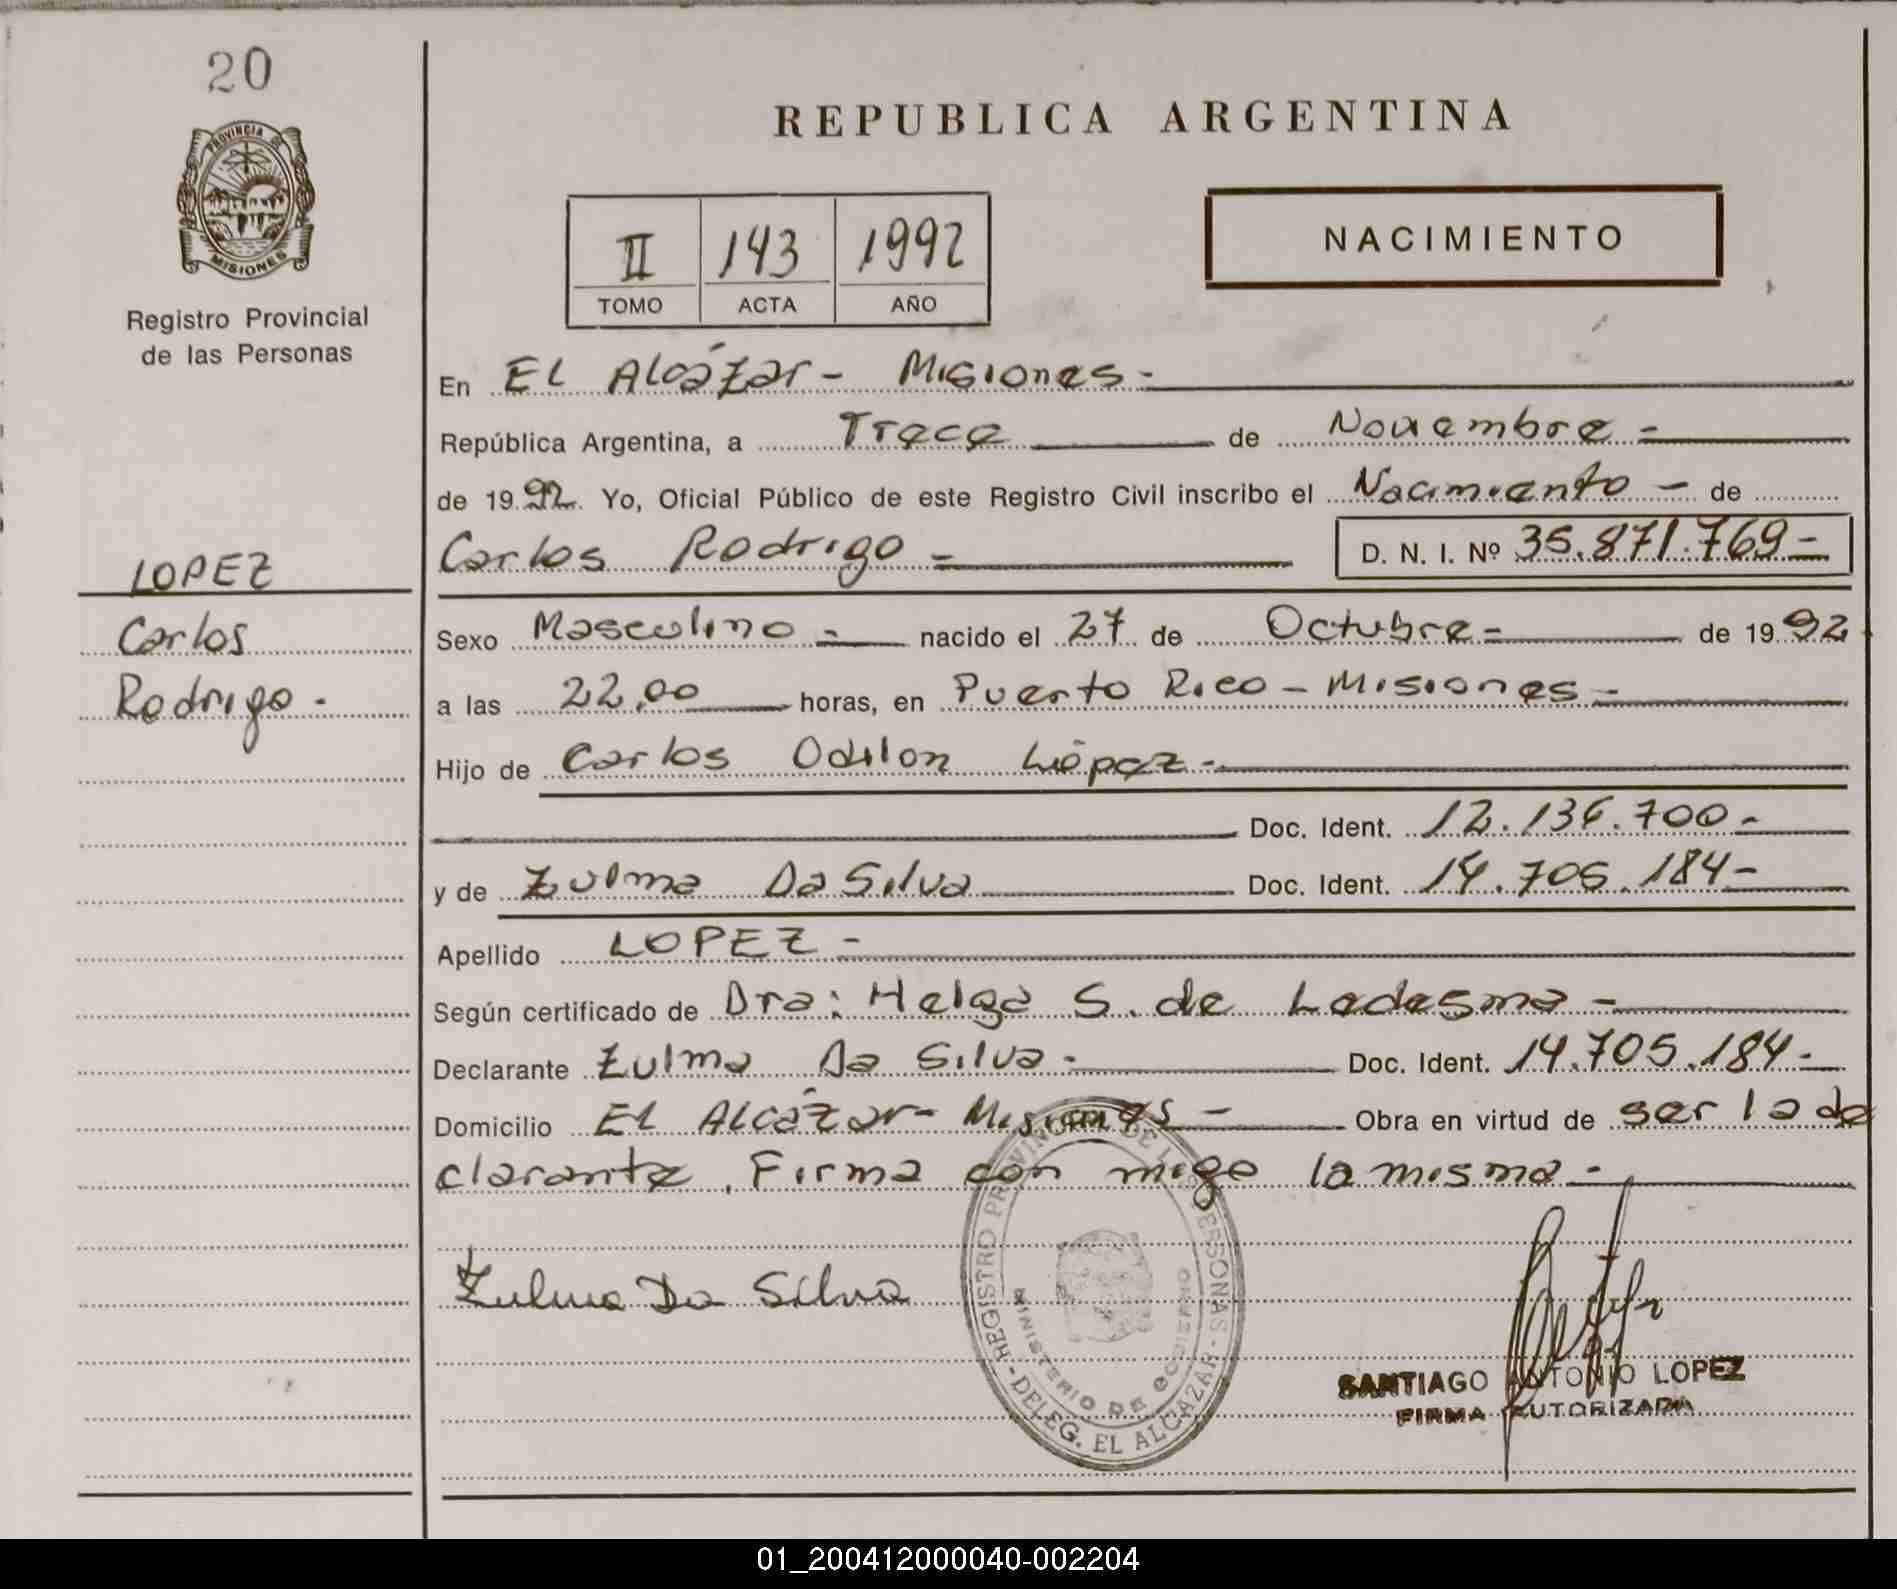 20
PROVINCIA DE
MISIONES
Registro Provincial
de las Personas
LOPEZ
Carlos
Rodrigo.-
REPUBLICA ARGENTINA
II 143 1992
TOMO ACTA AÑO
NACIMIENTO
En EL Alcázar - Misiones -
República Argentina, a Trece de Noviembre -
de 1992. Yo, Oficial Público de este Registro Civil inscribo el Nacimiento - de
Carlos Rodrigo - D. N. I. Nº 35.871.769 -
Sexo Masculino - nacido el 27 de Octubre - de 1992
a las 22,00 horas, en Puerto Rico - Misiones -
Hijo de Carlos Odilon López -
Doc. Ident. 12.136.700 -
y de Zulma Da Silva Doc. Ident. 14.705.184 -
Apellido LOPEZ -
Según certificado de Dra: Helga S. de Ledesma -
Declarante Zulma Da Silva - Doc. Ident. 14.705.184 -
Domicilio EL Alcázar - Misiones - Obra en virtud de ser la de
clarante. Firma con migo la misma -
Zulma Da Silva
REGISTRO PROVINCIAL DE LAS PERSONAS - DELEG. EL ALCAZAR -
MINISTERIO DE GOBIERNO
SANTIAGO ANTONIO LOPEZ
FIRMA AUTORIZADA
01_200412000040-002204